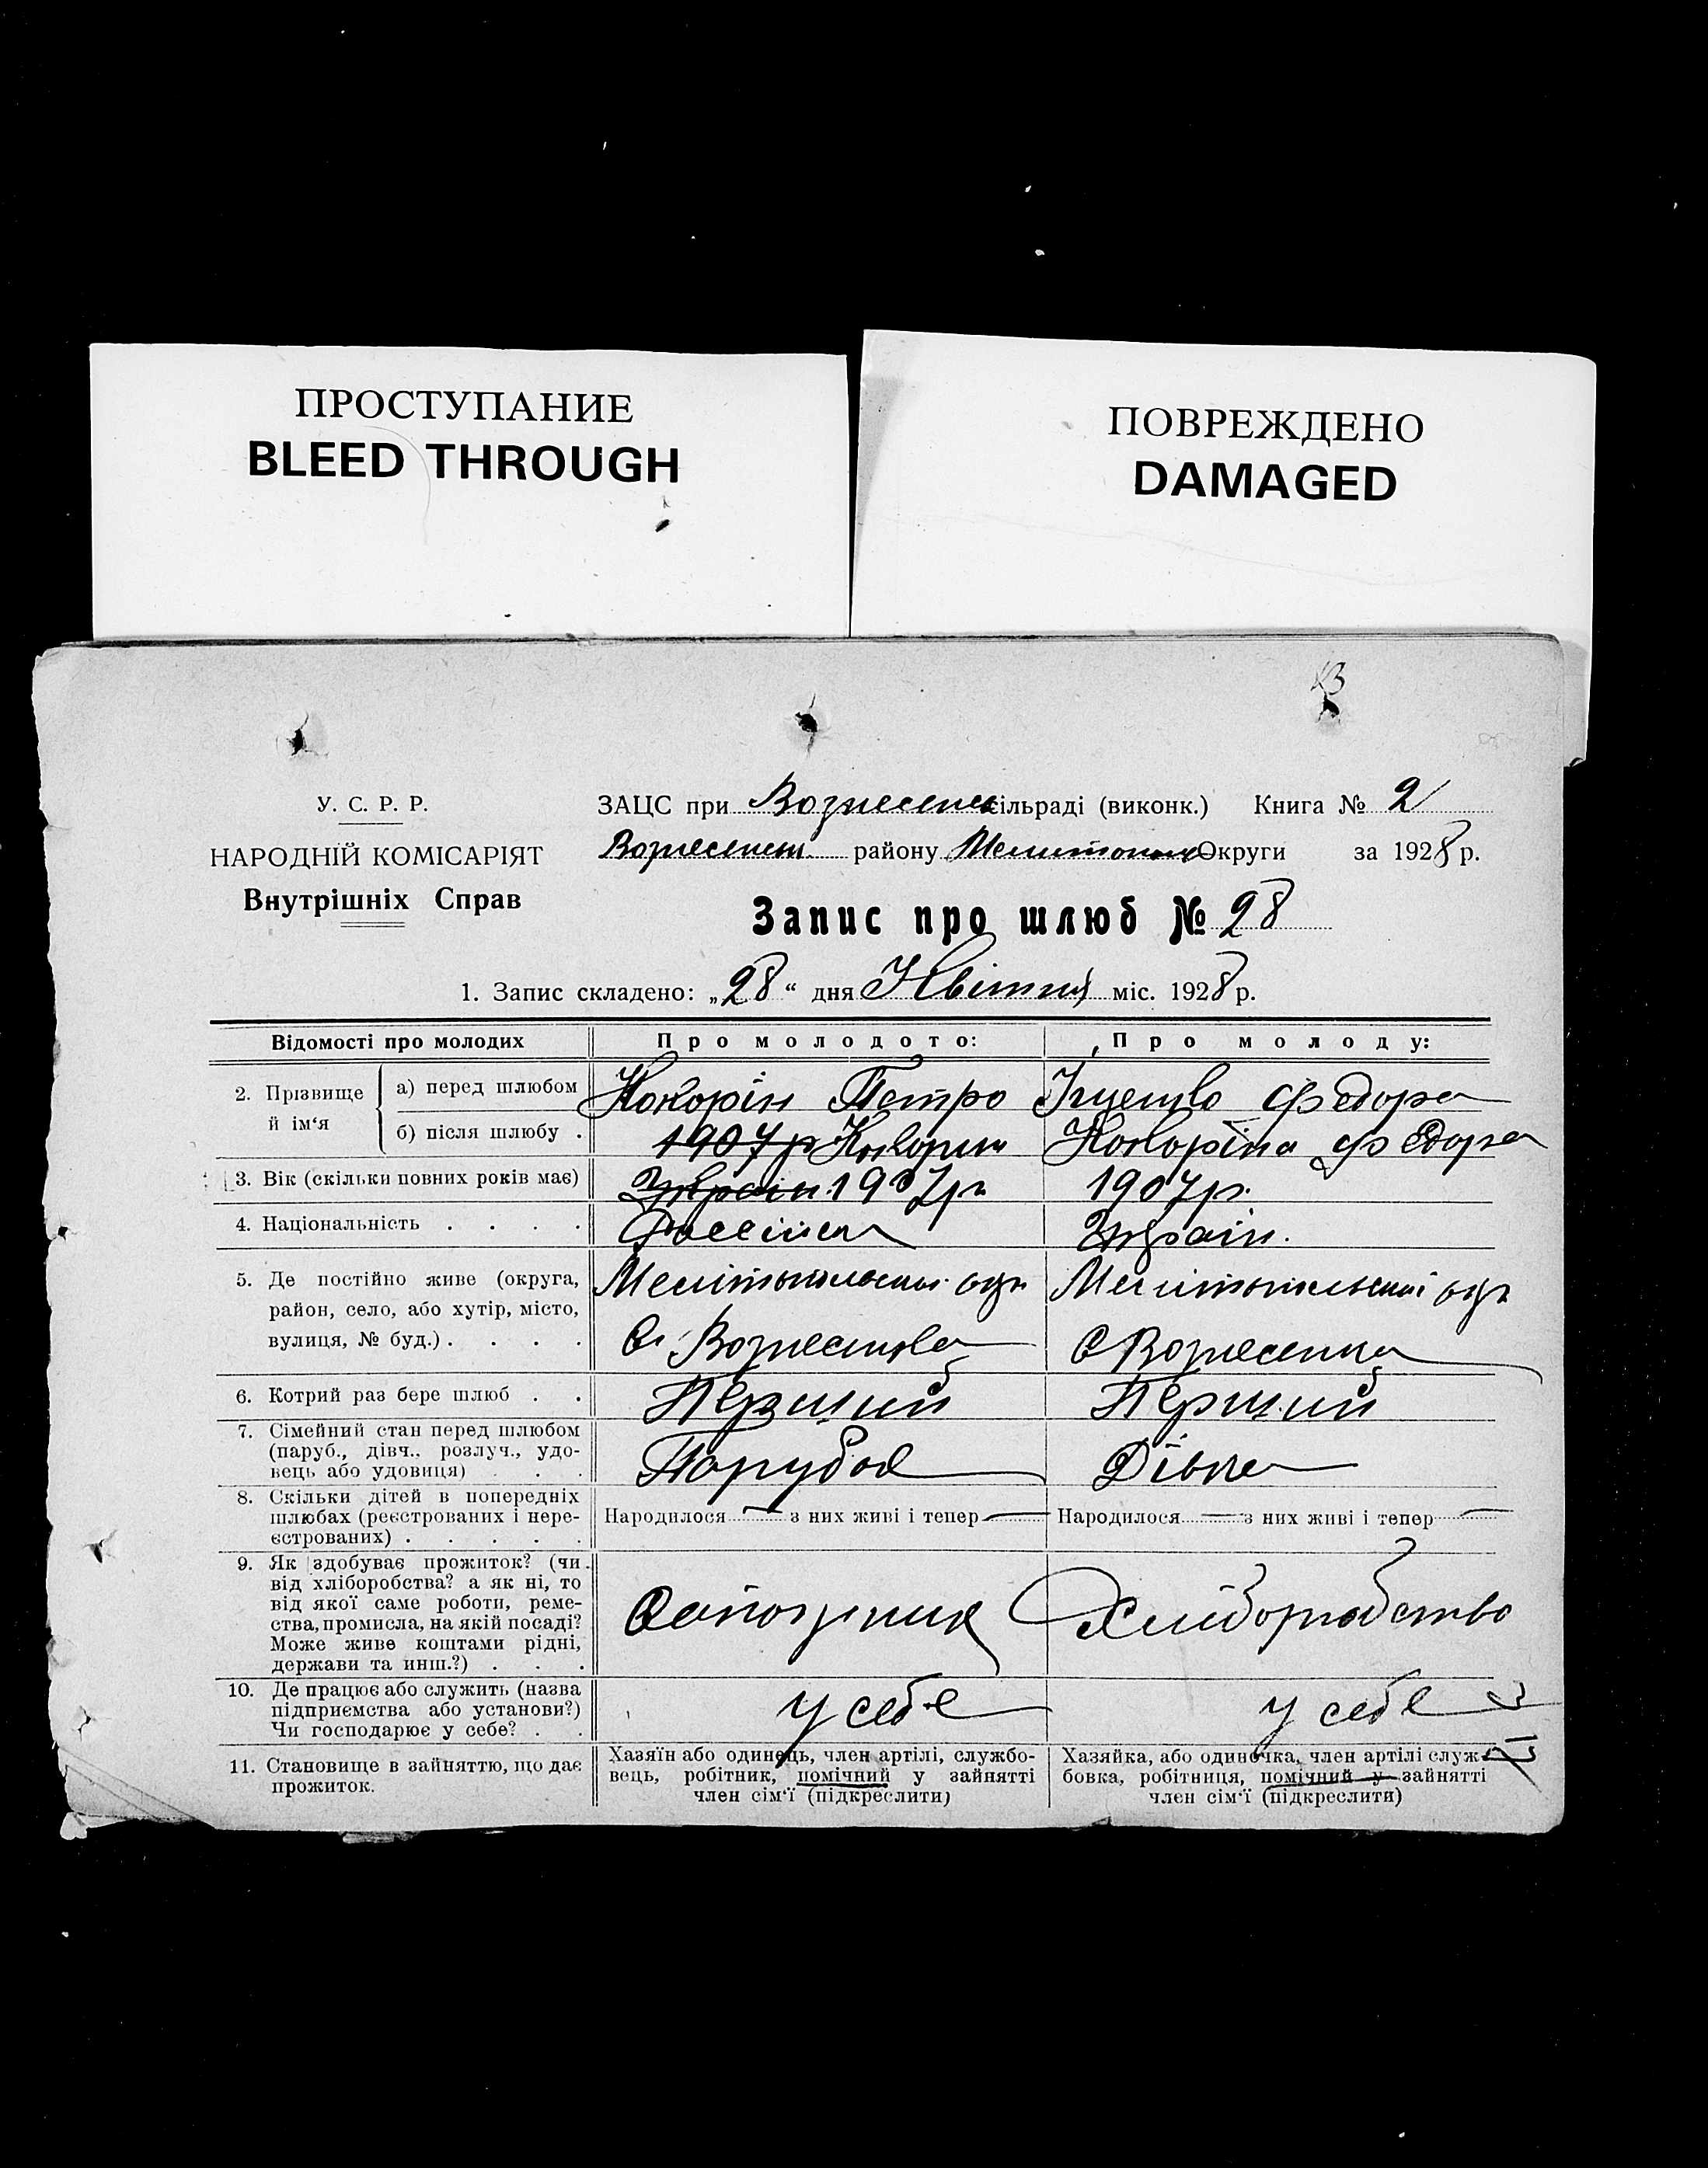 ПРОСТУПАНИЕ
BLEED THROUGH
ПОВРЕЖДЕНО
DAMAGED
У. С. Р. Р.
НАРОДНІЙ КОМІСАРІЯТ
Внутрішніх Справ
ЗАЦС при Вознесенск сільраді (виконк.) Книга № 2
Вознесенск. району Мелитопол Округи за 1928 р.
Запис про шлюб № 28
1. Запис складено: „28“ дня Квітня міс. 1928 р.
Відомості про молодих
Про молодого:
Про молоду:
2. Прізвище й ім‘я
а) перед шлюбом
Кокорін Петро
Федора
б) після шлюбу .
1907 р Кокорин
Кокоріна Федора
3. Вік (скільки повних років має)
Україн. 1907 р.
1907 р.
4. Національність . . . .
Украін.
5. Де постійно живе (округа,
район, село, або хутір, місто,
вулиця, № буд.) . . . .
Мелітопольськ. окр
С. Вознесенка
Мелітопольськоі окр
С Вознесенка
6. Котрий раз бере шлюб . .
Перший
Перший
7. Сімейний стан перед шлюбом
(паруб., дівч., розлуч., удо-
вець або удовиця) . . .
Парубок
Дівка
8. Скільки дітей в попередніх
шлюбах (реєстрованих і нере-
єстрованих) . . . . .
Народилося — з них живі і тепер —
Народилося — з них живі і тепер —
9. Як здобуває прожиток? (чи
від хліборобства? а як ні, то
від якої саме роботи, реме-
ства, промисла, на якій посаді?
Може живе коштами рідні,
держави та инш.?) . . .
Сапожник
Хліборобство
10. Де працює або служить (назва
підприємства або установи?)
Чи господарює у себе? . .
у себе
у себе
11. Становище в зайняттю, що дає
прожиток.
Хазяїн або одинець, член артілі, службо-
вець, робітник, помічний у зайнятті
член сім‘ї (підкреслити)
Хазяйка, або одиночка, член артілі служ-
бовка, робітниця, помічний у зайнятті
член сім‘ї (підкреслити)